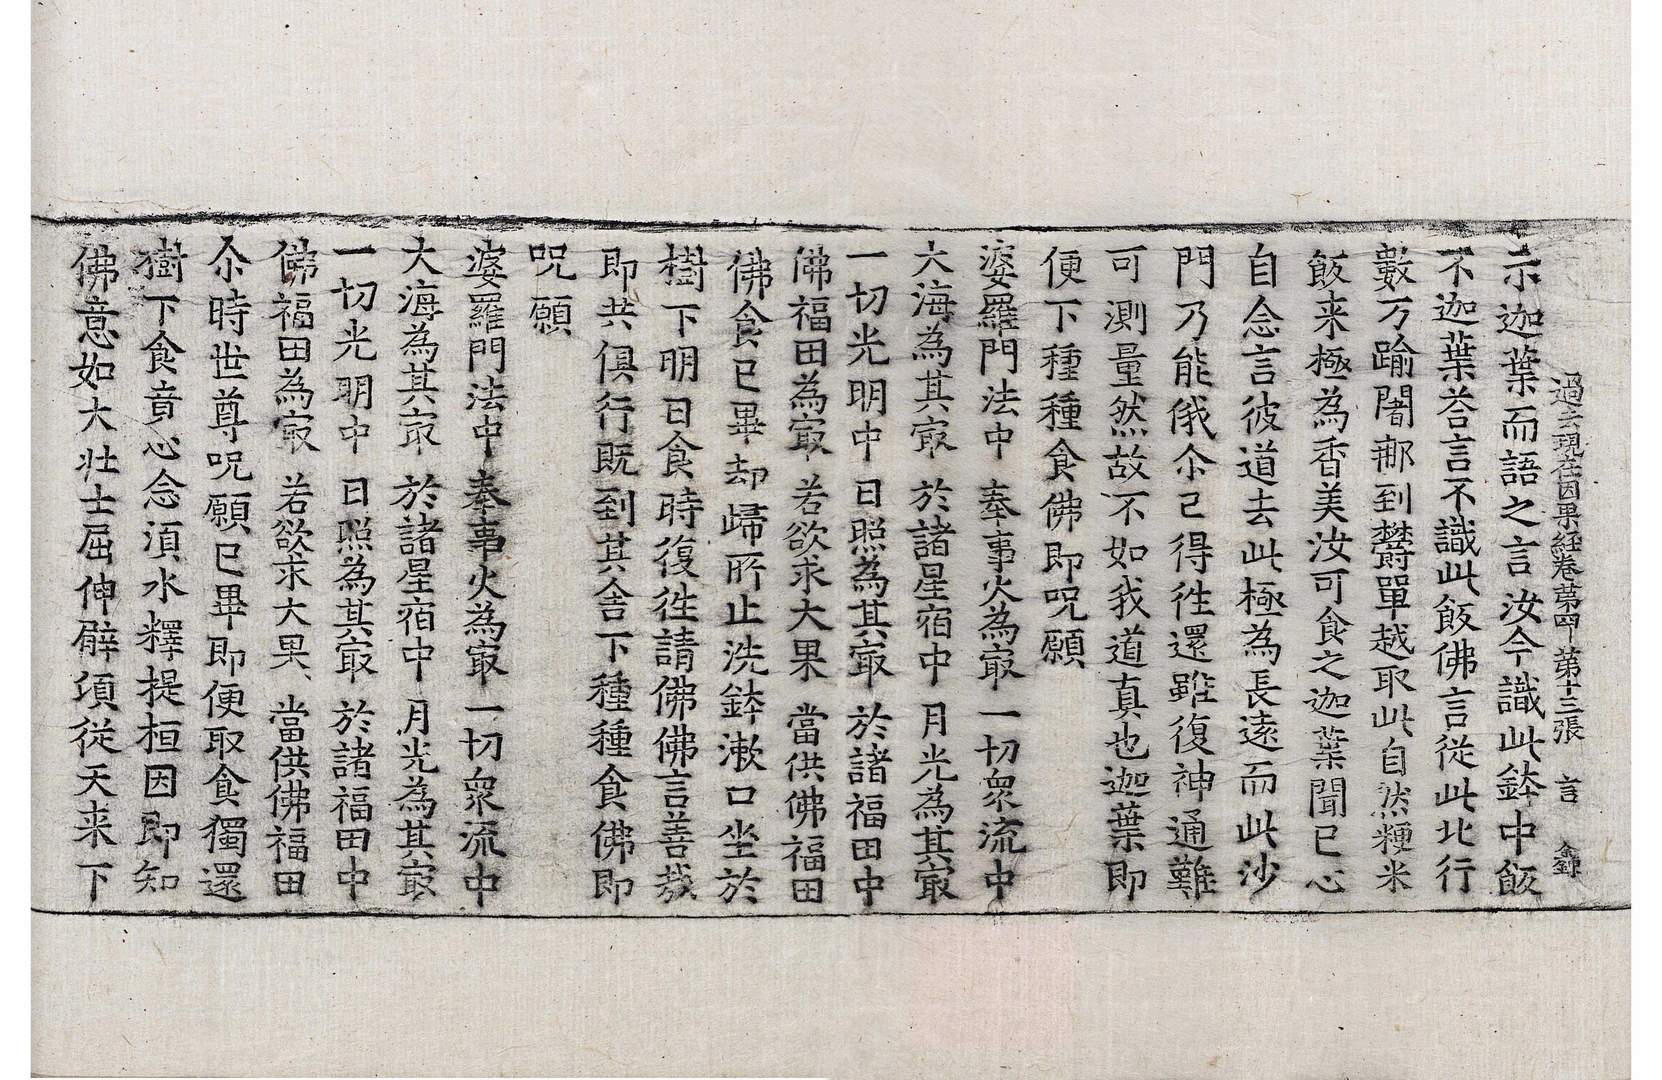 過去現在因果経卷苐四 苐十三張 言 鑫
示迦葉而語之言汝今識此鉢中飯
不迦葉荅言不識此飯佛言従此北行
數万踰闍那到欝單越取此自然粳米
飯来極為香美汝可食之迦葉聞已心
自念言彼道去此極為長遠而此沙
門乃能俄尒已得徃還雖復神通難
可測量然故不如我道真也迦葉即
便下種種食佛即呪願
婆羅門法中 奉事火為㝡 一切衆流中
大海為其㝡 於諸星宿中 月光為其㝡
一切光明中 日照為其㝡 於諸福田中
佛福田為㝡 若欲求大果 當供佛福田
佛食已畢却歸所止洗鉢漱口坐於
樹下明日食時復徃請佛佛言善哉
即共俱行既到其舍下種種食佛即
呪願
婆羅門法中 奉事火為㝡 一切衆流中
大海為其㝡 於諸星宿中 月光為其㝡
一切光明中 日照為其㝡 於諸福田中
佛福田為㝡 若欲求大果 當供佛福田
尒時世尊呪願已畢即便取食獨還
樹下食竟心念湏水釋提桓因即知
佛意如大壮士屈伸臂頃従天来下